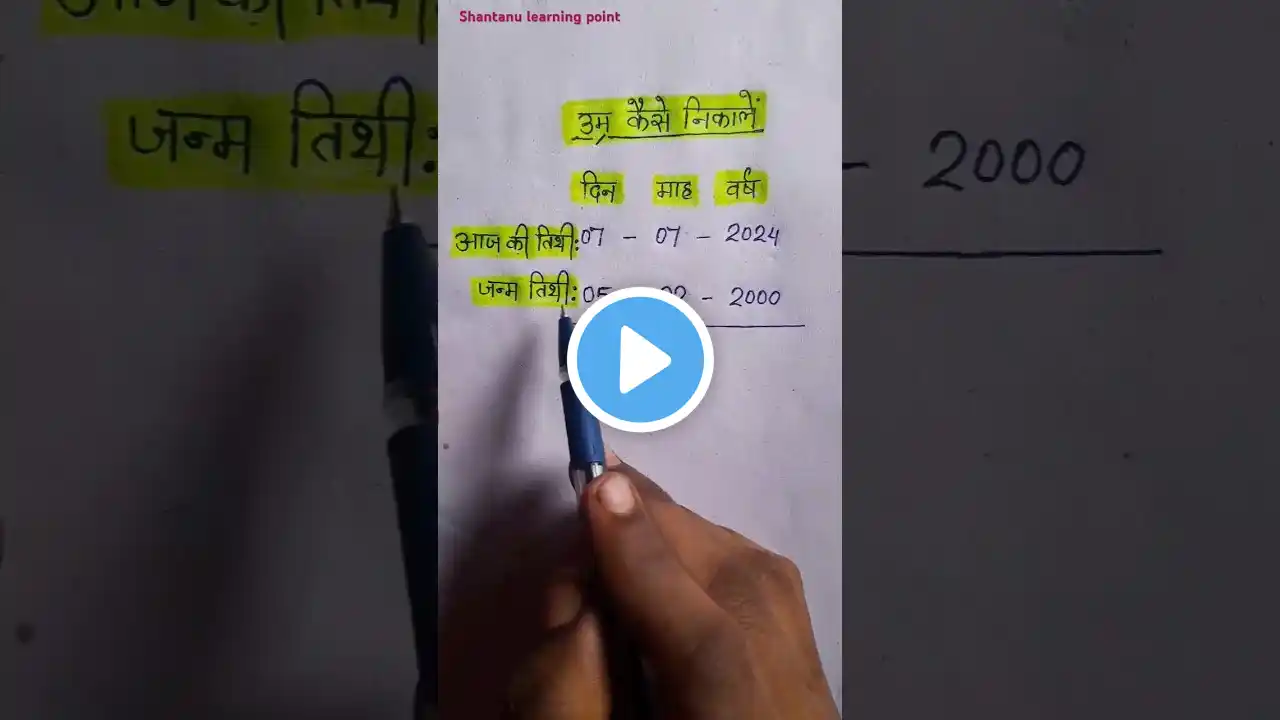 Shantanu learning point
उम्र कैसे निकालें
दिन माह वर्ष
आज की तिथी: 07 - 07 - 2024
जन्म तिथी: - 2000